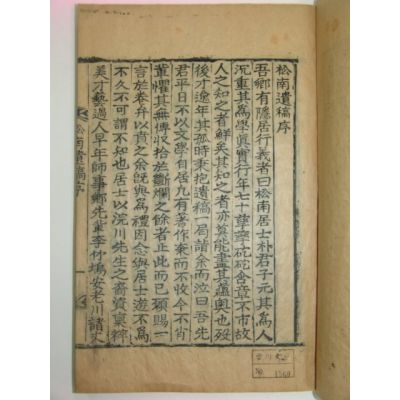 松南遺稿序
吾鄉有隱居行義者曰松南居士朴君子元其爲人
沉重其爲學眞實行年七十韋
含章不市故
人之知之者鮮矣其知之者亦奠能盡其蘊奧也歿
後才逾年其孤時秉抱遺稿一局諸余而泣曰吾先
君平日不以文學自居凡有著作棄而不收今不肖
輩懼其無傳收拾於斷爛之餘者止此而已願賜一
言於卷弁以賁之余旣與爲禮因念與居士遊不爲
不久不可謂不知也居士以浣川先生之裔資稟粹
美才藝過人早年師事鄕先輩李竹塢安老川諸丈
松南遺稿序
1560